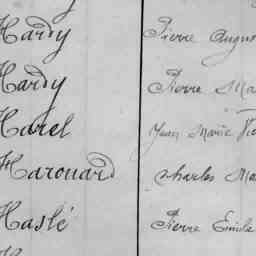 Hardy Pierre Augus
Hardy Pierre Ma
Harel Jean Marie
Harouard Charles Ma
Haslé Pierre Emile